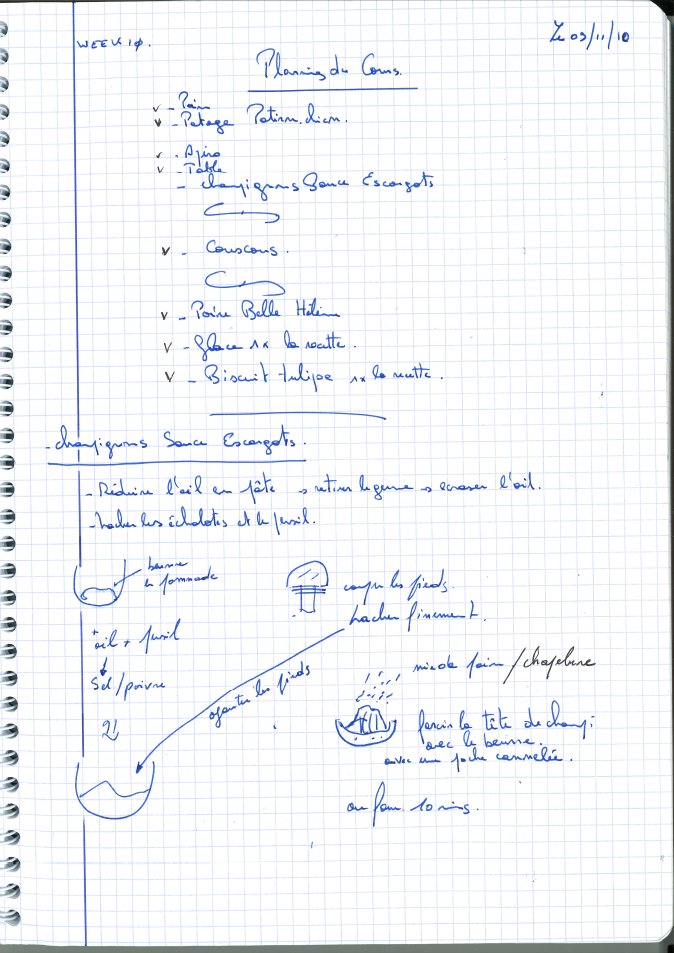 WEEK 10.
Le 09/11/10
Planning du Cours.
v - Pain
v - Potage Potimarron.
v - Apéro
v - Table
- champignons Sauce Escargots
v - Couscous.
v - Poire Belle Hélène
v - Glace 1x la recette.
v - Biscuit tulipe 1x la recette.
- champignons Sauce Escargots.
- Réduire l'ail en pâte → retirer le germe → écraser l'ail.
- hacher les échalotes et le persil.
beurre
en pommade
couper les pieds.
hacher finement.
+ ail + persil
Sel/poivre
ajouter les pieds
mie de pain/chapelure
farcir la tête de champi
avec le beurre.
avec une poche cannelée.
au four 10 mins.